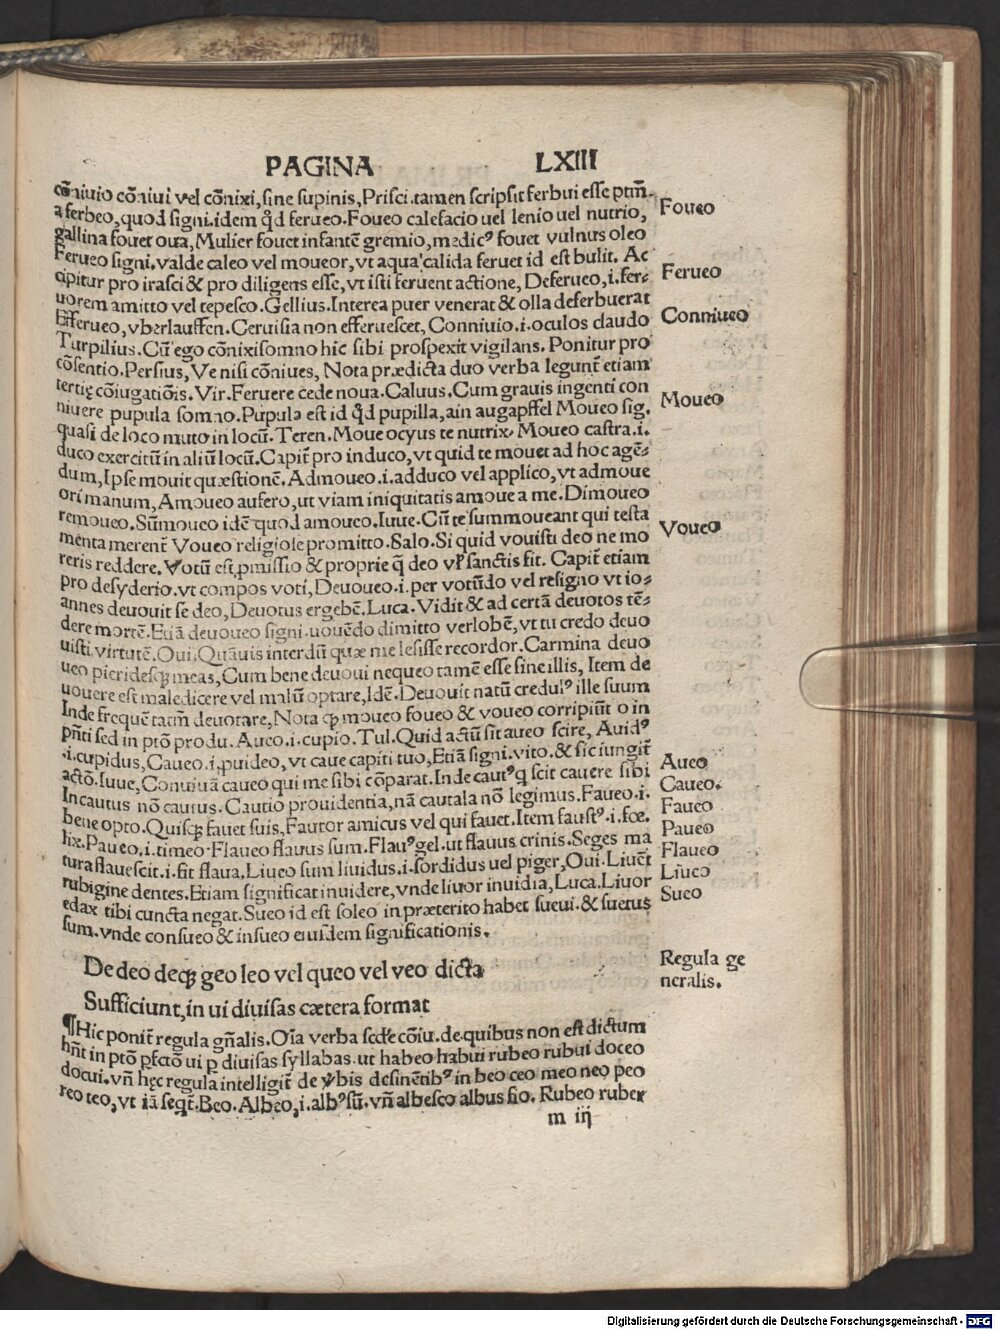 PAGINA LXIII
cōniuio cōniui vel cōnixi,sine supinis,Prisci.tamen scripsit ferbui esse ptm̄-
a ferbeo,quod signi.idem qd ferueo.Foueo calefacio uel lenio uel nutrio,
Foueo
gallina fouet oua,Mulier fouet infantē gremio,medicꝰ fouet vulnus oleo
Ferueo signi.valde caleo vel moueor,vt aqua calida feruet id est bulit. Ac
cipitur pro irasci & pro diligens esse,vt isti feruent actione, Deferueo,i.fer⸗
Ferueo
uorem amitto vel tepesco.Gellius.Interea puer venerat & olla deferbuerat
Efferueo,vberlauffen.Ceruisia non efferuescet, Conniuio.i.oculos claudo
Conniueo
Turpilius.Cū ego cōnixi somno hic sibi prospexit vigilans. Ponitur pro
cōsentio.Persius,Ve nisi cōniues, Nota prædicta duo verba legunt̄ etiam
tertię cōiugatiōis.Vir.Feruere cede noua.Caluus.Cum grauis ingenti con
niuere pupula somno.Pupula est id qd pupilla,ain augapffel Moueo sig.
Moueo
quasi de loco muto in locū.Teren.Moue ocyus te nutrix. Moueo castra.i.
duco exercitū in aliū locū.Capit̄ pro induco,vt quid te mouet ad hoc agē⸗
dum,Ipse mouit quæstionē.Admoueo.i.adduco vel applico,vt admoue
ori manum,Amoueo aufero,ut viam iniquitatis amoue a me.Dimoueo
remoueo.Sūmoueo idē quod amoueo.Iuue.Cū te summoueant qui testa
menta merent̄ Voueo religiose promitto.Salo.Si quid vouisti deo ne mo
Voueo
reris reddere. Votū est pmissio & proprie q̄ deo vl sanctis fit. Capit̄ etiam
pro desyderio.vt compos voti, Deuoueo.i.per votū do vel resigno vt io⸗
annes deuouit se deo,Deuotus ergebē.Luca.Vidit & ad certā deuotos tē⸗
dere mortē.Etiā deuoueo signi.uouēdo dimitto verlobē,vt tu credo deuo
uisti.virtutē.Oui.Quāuis interdū quæ me lesisse recordor.Carmina deuo
ueo pieridesqꝫ meas,Cum bene deuoui nequeo tamē esse sine illis, Item de
uouere est maledicere vel malū optare,Idē.Deuouit natū credulꝰ ille suum
Inde frequētatm̄ deuotare,Nota qꝫ moueo foueo & voueo corripiūt o in
pn̄ti sed in ptō produ. Aueo.i.cupio.Tul.Quid actū sit aueo scire, Auidꝰ
.i.cupidus,Caueo.i.puideo,vt caue capiti tuo,Etiā signi.vito.& sic iungit̄
Aueo
actō.Iuue,Conuiuā caueo qui me sibi cōparat.Inde cautꝰ q scit cauere sibi
Caueo.
Incautus nō cautus.Cautio prouidentia,nā cautala nō legimus.Faueo.i.
Faueo
bene opto.Quisqꝫ fauet suis,Fautor amicus vel qui fauet.Item faustꝰ.i.fœ.
Paueo
lix.Paueo,i.timeo.Flaueo flauus sum.Flauꝰ gel.ut flauus crinis.Seges ma
Flaueo
tura flauescit.i.fit flaua,Liueo sum liuidus.i.sordidus uel piger,Oui.Liuēt
Liueo
rubigine dentes.Etiam significat inuidere,vnde liuor inuidia,Luca.Liuor
Sueo
edax tibi cuncta negat.Sueo id est soleo in præterito habet sueui.& suetus
sum.vnde consueo & insueo eiusdem significationis.
De deo deqꝫ geo leo vel queo vel veo dicta
Regula ge
neralis.
Sufficiunt,in ui diuisas cætera format
¶Hic ponit̄ regula gn̄alis.Oīa verba scd̄e cōiu.de quibus non est dictum
hn̄t in ptō pfctō ui p diuisas syllabas.ut habeo habui rubeo rubui doceo
docui.vn̄ hęc regula intelligit̄ de vbis desinētibꝰ in beo ceo meo neo peo
reo teo,vt iā seqt̄.Beo.Albeo,i.albꝰ sū.vn̄ albesco albus fio. Rubeo ruber
m iij
Digitalisierung gefördert durch die Deutsche Forschungsgemeinschaft - DFG